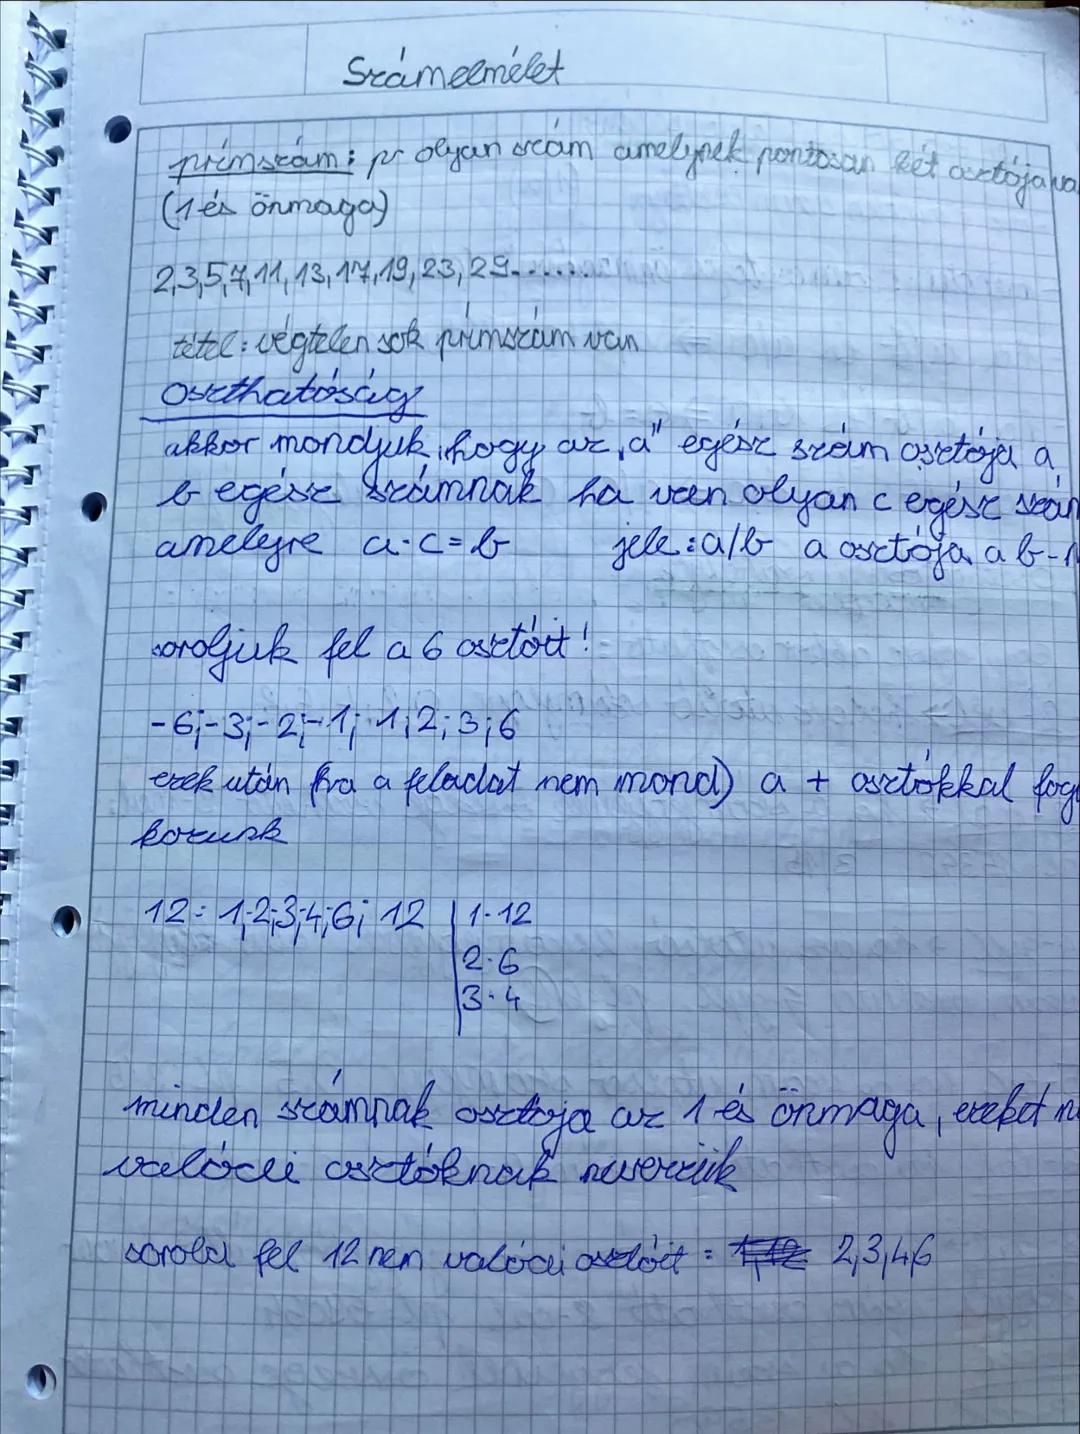 Számelmélet
prímszám: pr olyan szám amelynek pontosan két osztója va
(1 és önmaga)
2,3,5,7,11,13,17,19,23,29.......
tétel: végtelen sok prímszám van
Oszthatóság
akkor mondjuk, hogy az „a" egész szám osztója a
b egész számnak ha van olyan c egész szám
amelyre a·c=b jele: a/b a osztója a b-n
soroljuk fel a 6 osztóit!
-6;-3;-2;-1; 1;2;3;6
ezek után (ha a feladat nem mond) a + osztókkal fog
kozunk
12: 1;2;3;4;6; 12 | 1·12
2·6
3·4
minden számnak osztója az 1 és önmaga, ezeket n
valódi osztóknak nevezzük
sorold fel 12 nem valódi osztóit = 1,12 2,3,4,6